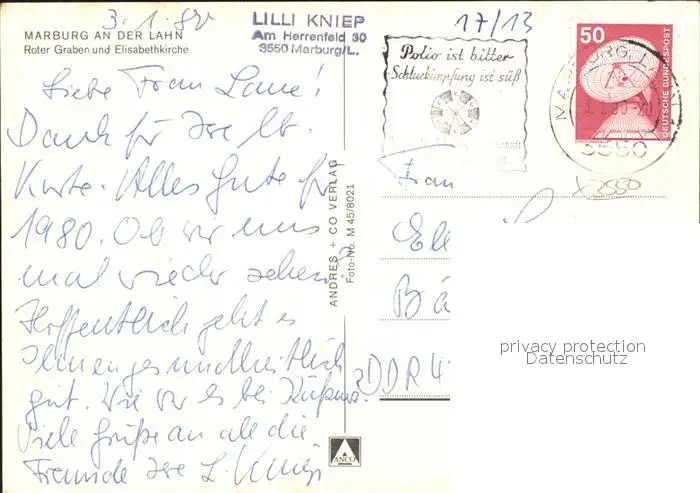 3.1.80
LILLI KNIEP
Am Herrenfeld 30
3550 Marburg/L.
17/13
MARBURG AN DER LAHN
Roter Graben und Elisabethkirche
Liebe Frau
Dank für Ihre lb.
Karte. Alles Gute für
1980. Ob wir uns
mal wieder sehen?
Hoffentlich geht es
Ihnen gesundheitlich
gut. Wie war es bei
Viele Grüße an alle die
Freunde Ihre L. Kniep
ANDRES + CO VERLAG
Foto-No. M 45/8021
ANCO
Polio ist bitter
Schluckimpfung ist süß
50
DEUTSCHE BUNDESPOST
MARBURG, LAHN
3550
Frau
x 3550
DDR 4
privacy protection
Datenschutz